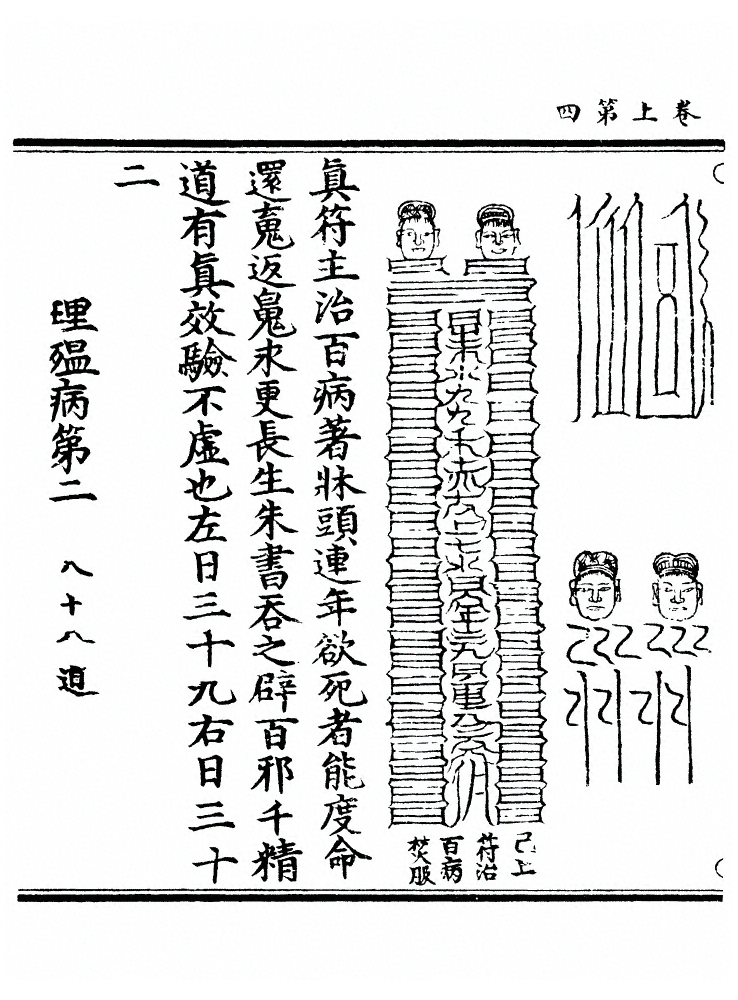 卷上第四
已上
符治
百病
焚服
眞符主治百病著牀頭連年欲死者能度命
還䰟返䰟求更長生朱書吞之辟百邪千精
道有眞效驗不虛也左日三十九右日三十
二
理殟病第二 八十八道